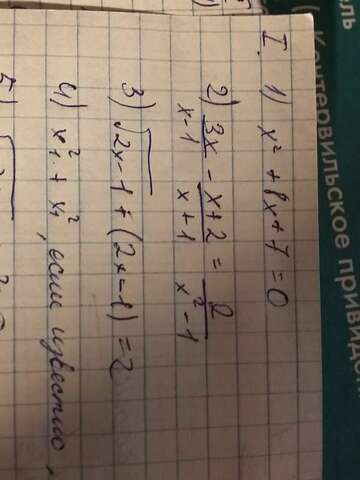 I. 1) x² + 8x + 7 = 0
2) 3x/x-1 - x+2/x+1 = 2/x²-1
3) √2x-1 + (2x-1) = 2
4) x₁² + x₂², если известно,
5)
Кентервильское привиден